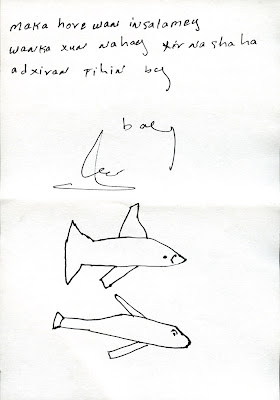 maka hore wan insalamey
wanka xun nahay xirnashaha
adxiran fihin bey
baey